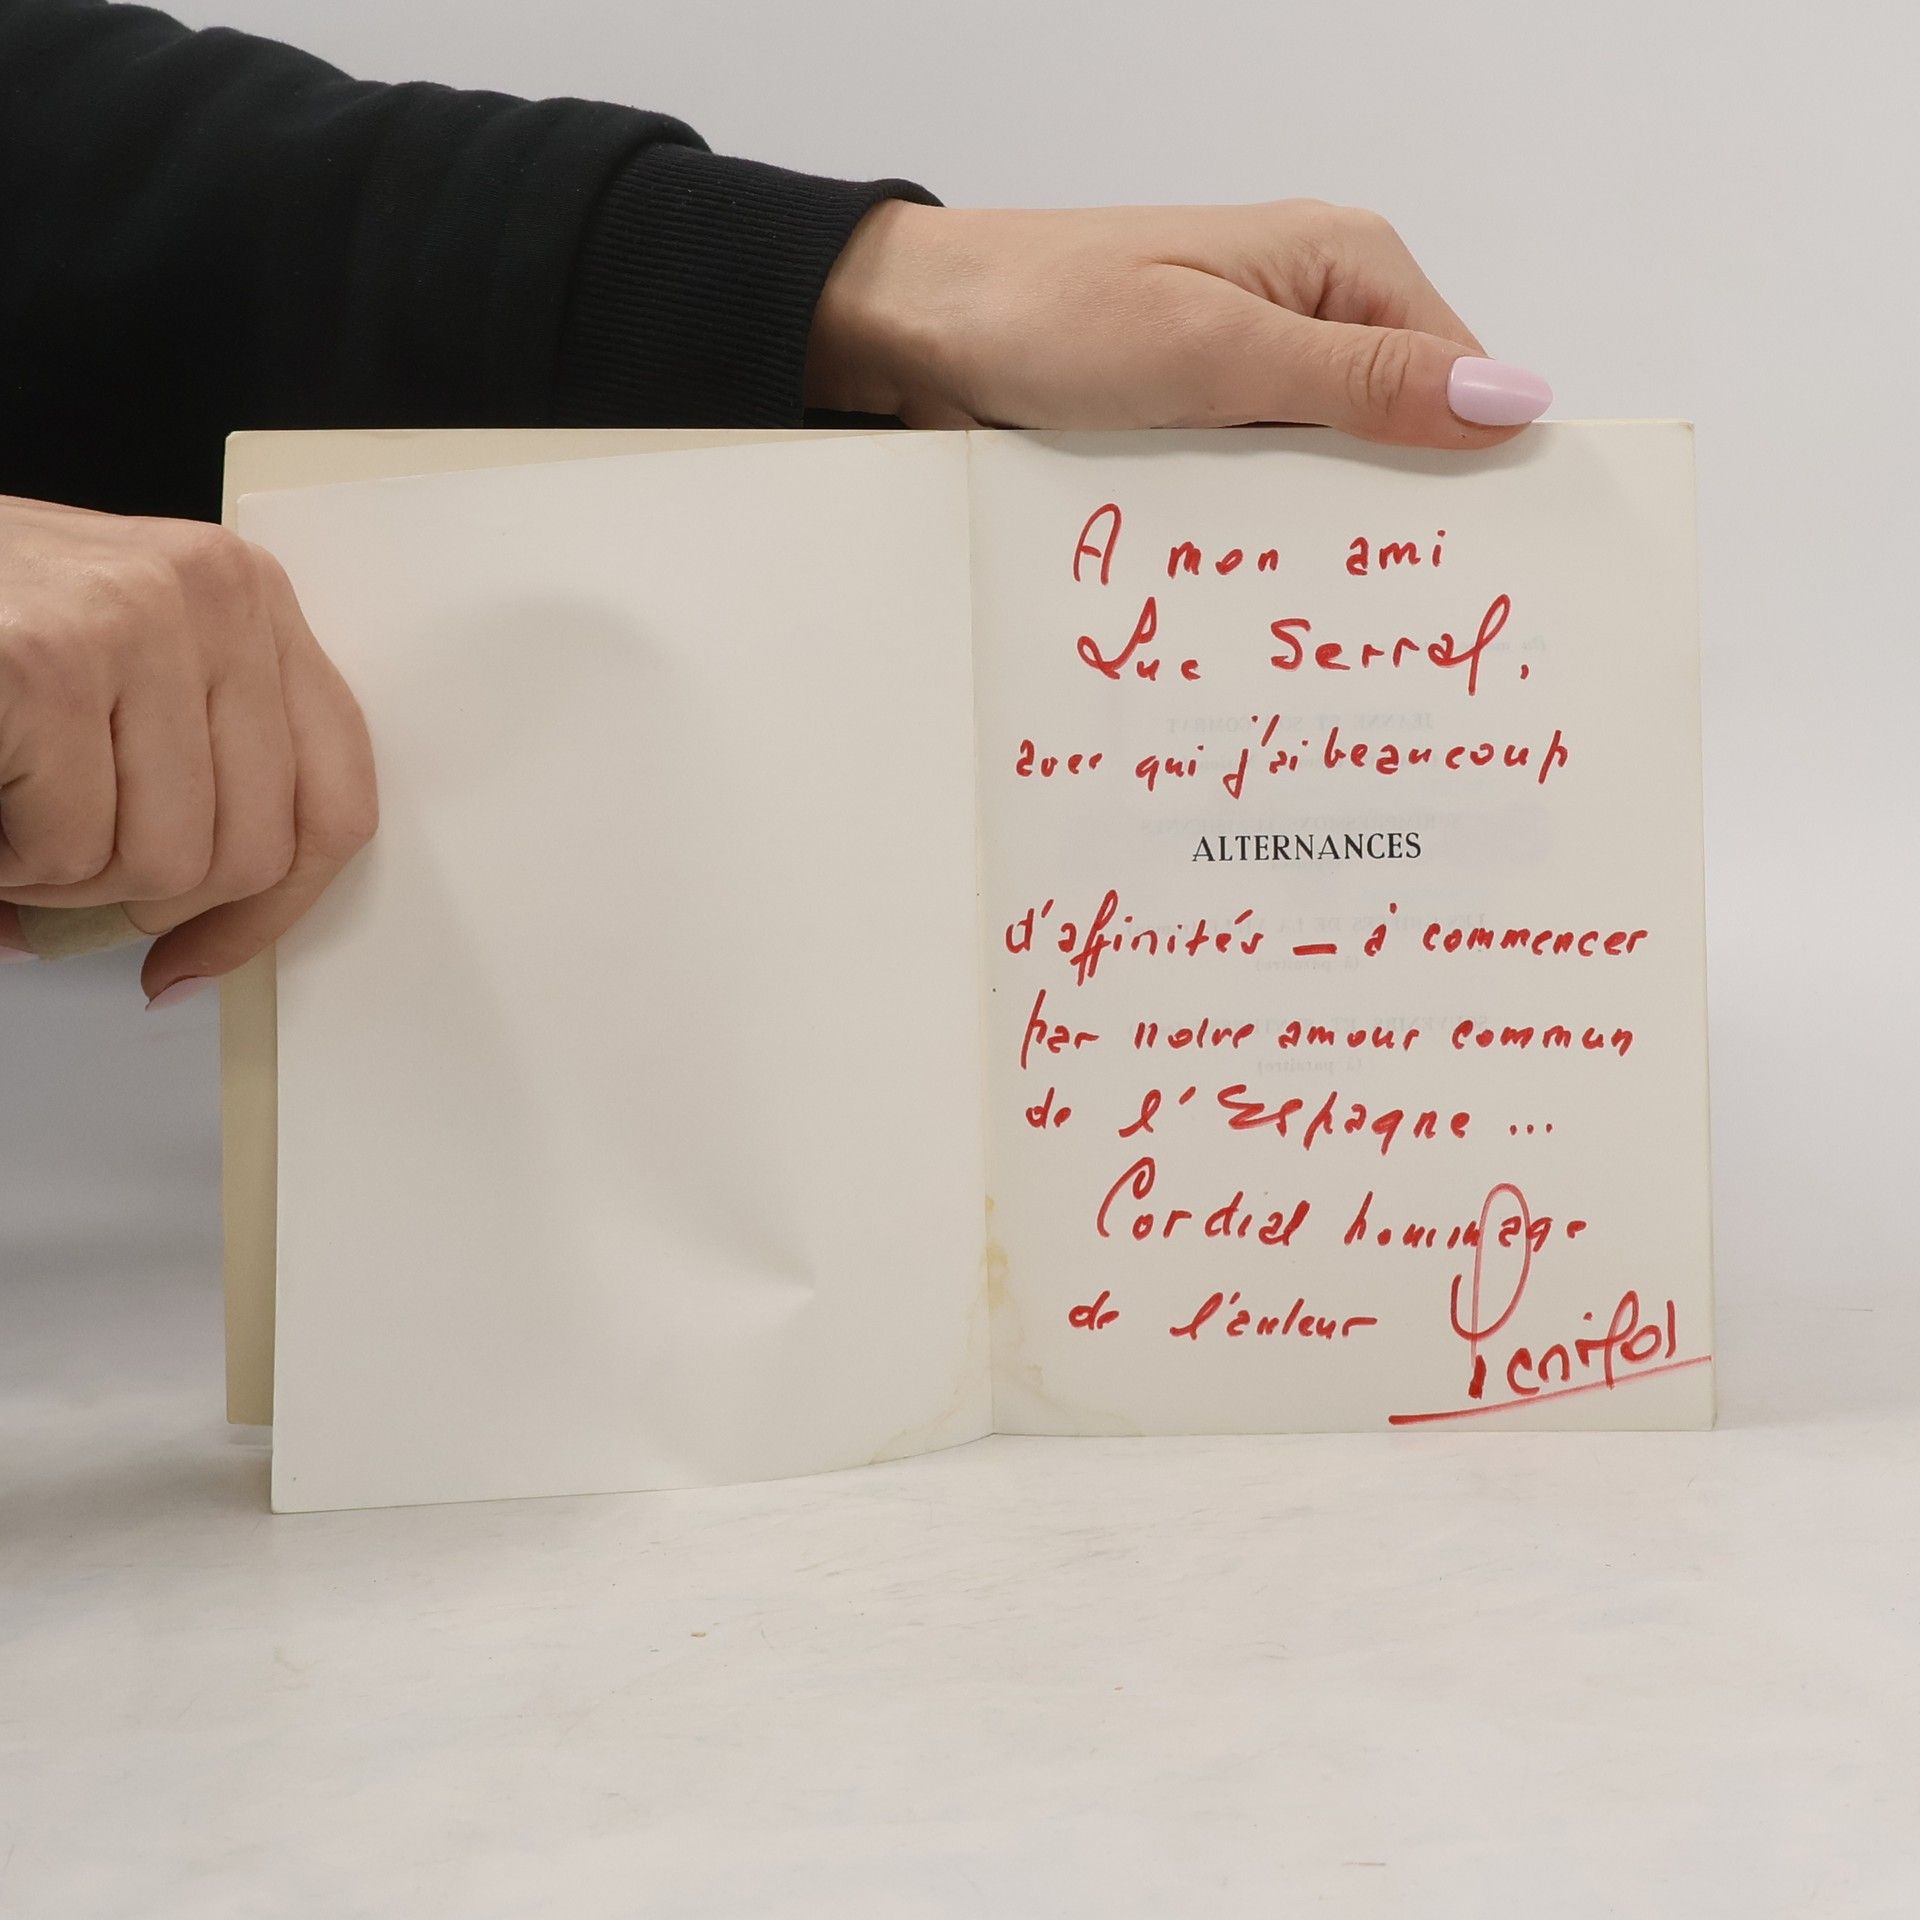 A mon ami
Luc Serral,
avec qui j'ai beaucoup
ALTERNANCES
d'affinités — à commencer
par notre amour commun
de l'Espagne ...
Cordial hommage
de l'auteur